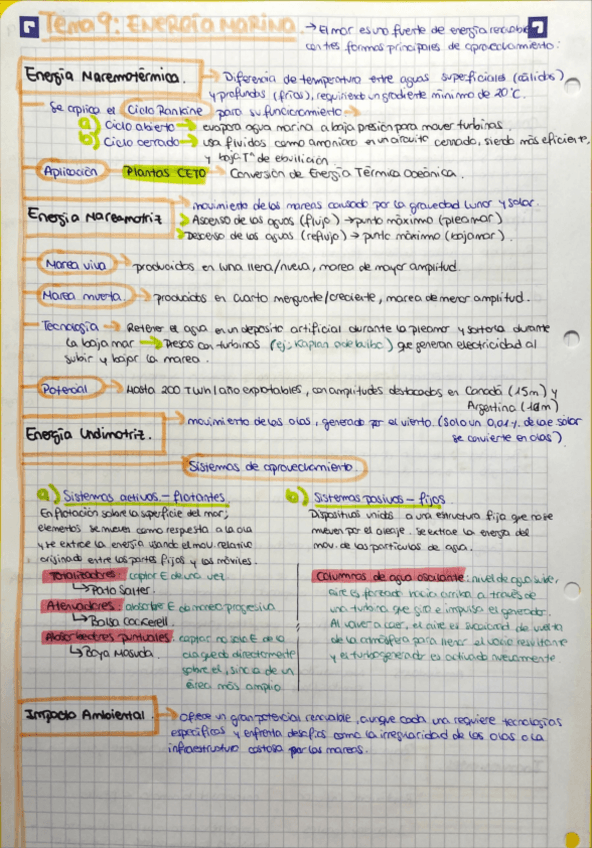 Tema 9: ENERGÍA MARINA. → El mar es una fuente de energía renovable
con tres formas principales de aprovechamiento:
Energía Maremotérmica. → Diferencia de temperatura entre aguas superficiales (cálidas)
y profundas (frías), requiriendo un gradiente mínimo de 20°C.
Se aplica el Ciclo Rankine para su funcionamiento
a) Ciclo abierto → evapora agua marina a baja presión para mover turbinas.
b) Ciclo cerrado → usa fluidos como amoniaco en un circuito cerrado, siendo más eficiente,
y baja Tª de ebullición.
Aplicación → Plantas CETO → Conversión de Energía Térmica Oceánica.
movimiento de las mareas causado por la gravedad lunar y solar.
Energía Mareamotriz → Ascenso de las aguas (flujo) → punto máximo (pleamar)
Descenso de las aguas (reflujo) → punto máximo (bajamar)
Marea viva → producidas en luna llena/nueva, marea de mayor amplitud.
Marea muerta. → producidas en cuarto menguante/creciente, marea de menor amplitud.
Tecnología → Retener el agua en un depósito artificial durante la pleamar y soltarla durante
la bajamar → Presas con turbinas (ej: Kaplan o de bulbo) que generan electricidad al
subir y bajar la marea.
Potencial → Hasta 200 TWh/año explotables, con amplitudes destacadas en Canadá (15m) y
Argentina
Energía Undimotriz. → movimiento de las olas, generado por el viento. (Solo un 0,01% de la E solar
se convierte en olas)
Sistemas de aprovechamiento
a) Sistemas activos - flotantes
En flotación sobre la superficie del mar;
elementos se mueven como respuesta a la ola
y se extrae la energía usando el mov. relativo
originado entre las partes fijas y las móviles.
Totalizadores: captar E de una vez
↳ Pato Salter.
Atenuadores: absorber E de manera progresiva
↳ Balsa Cockerell.
Absorbedores puntuales: captar no solo E de la
ola que da directamente
↳ Boya Masuda. sobre él, sino la de un
área más amplia
b) Sistemas pasivos - fijos
Dispositivos unidos a una estructura fija que no se
mueven por el oleaje. Se extrae la energía del
mov. de las partículas de agua.
Columnas de agua oscilante: nivel de agua sube,
aire es forzado hacia arriba a través de
una turbina que gira e impulsa el generador.
Al volver a caer, el aire es succionado de vuelta
de la atmósfera para llenar el vacío resultante
y el turbogenerador es activado nuevamente
Impacto Ambiental → Ofrece un gran potencial renovable, aunque cada una requiere tecnologías
específicas y enfrenta desafíos como la irregularidad de las olas o la
infraestructura costosa por las mareas.